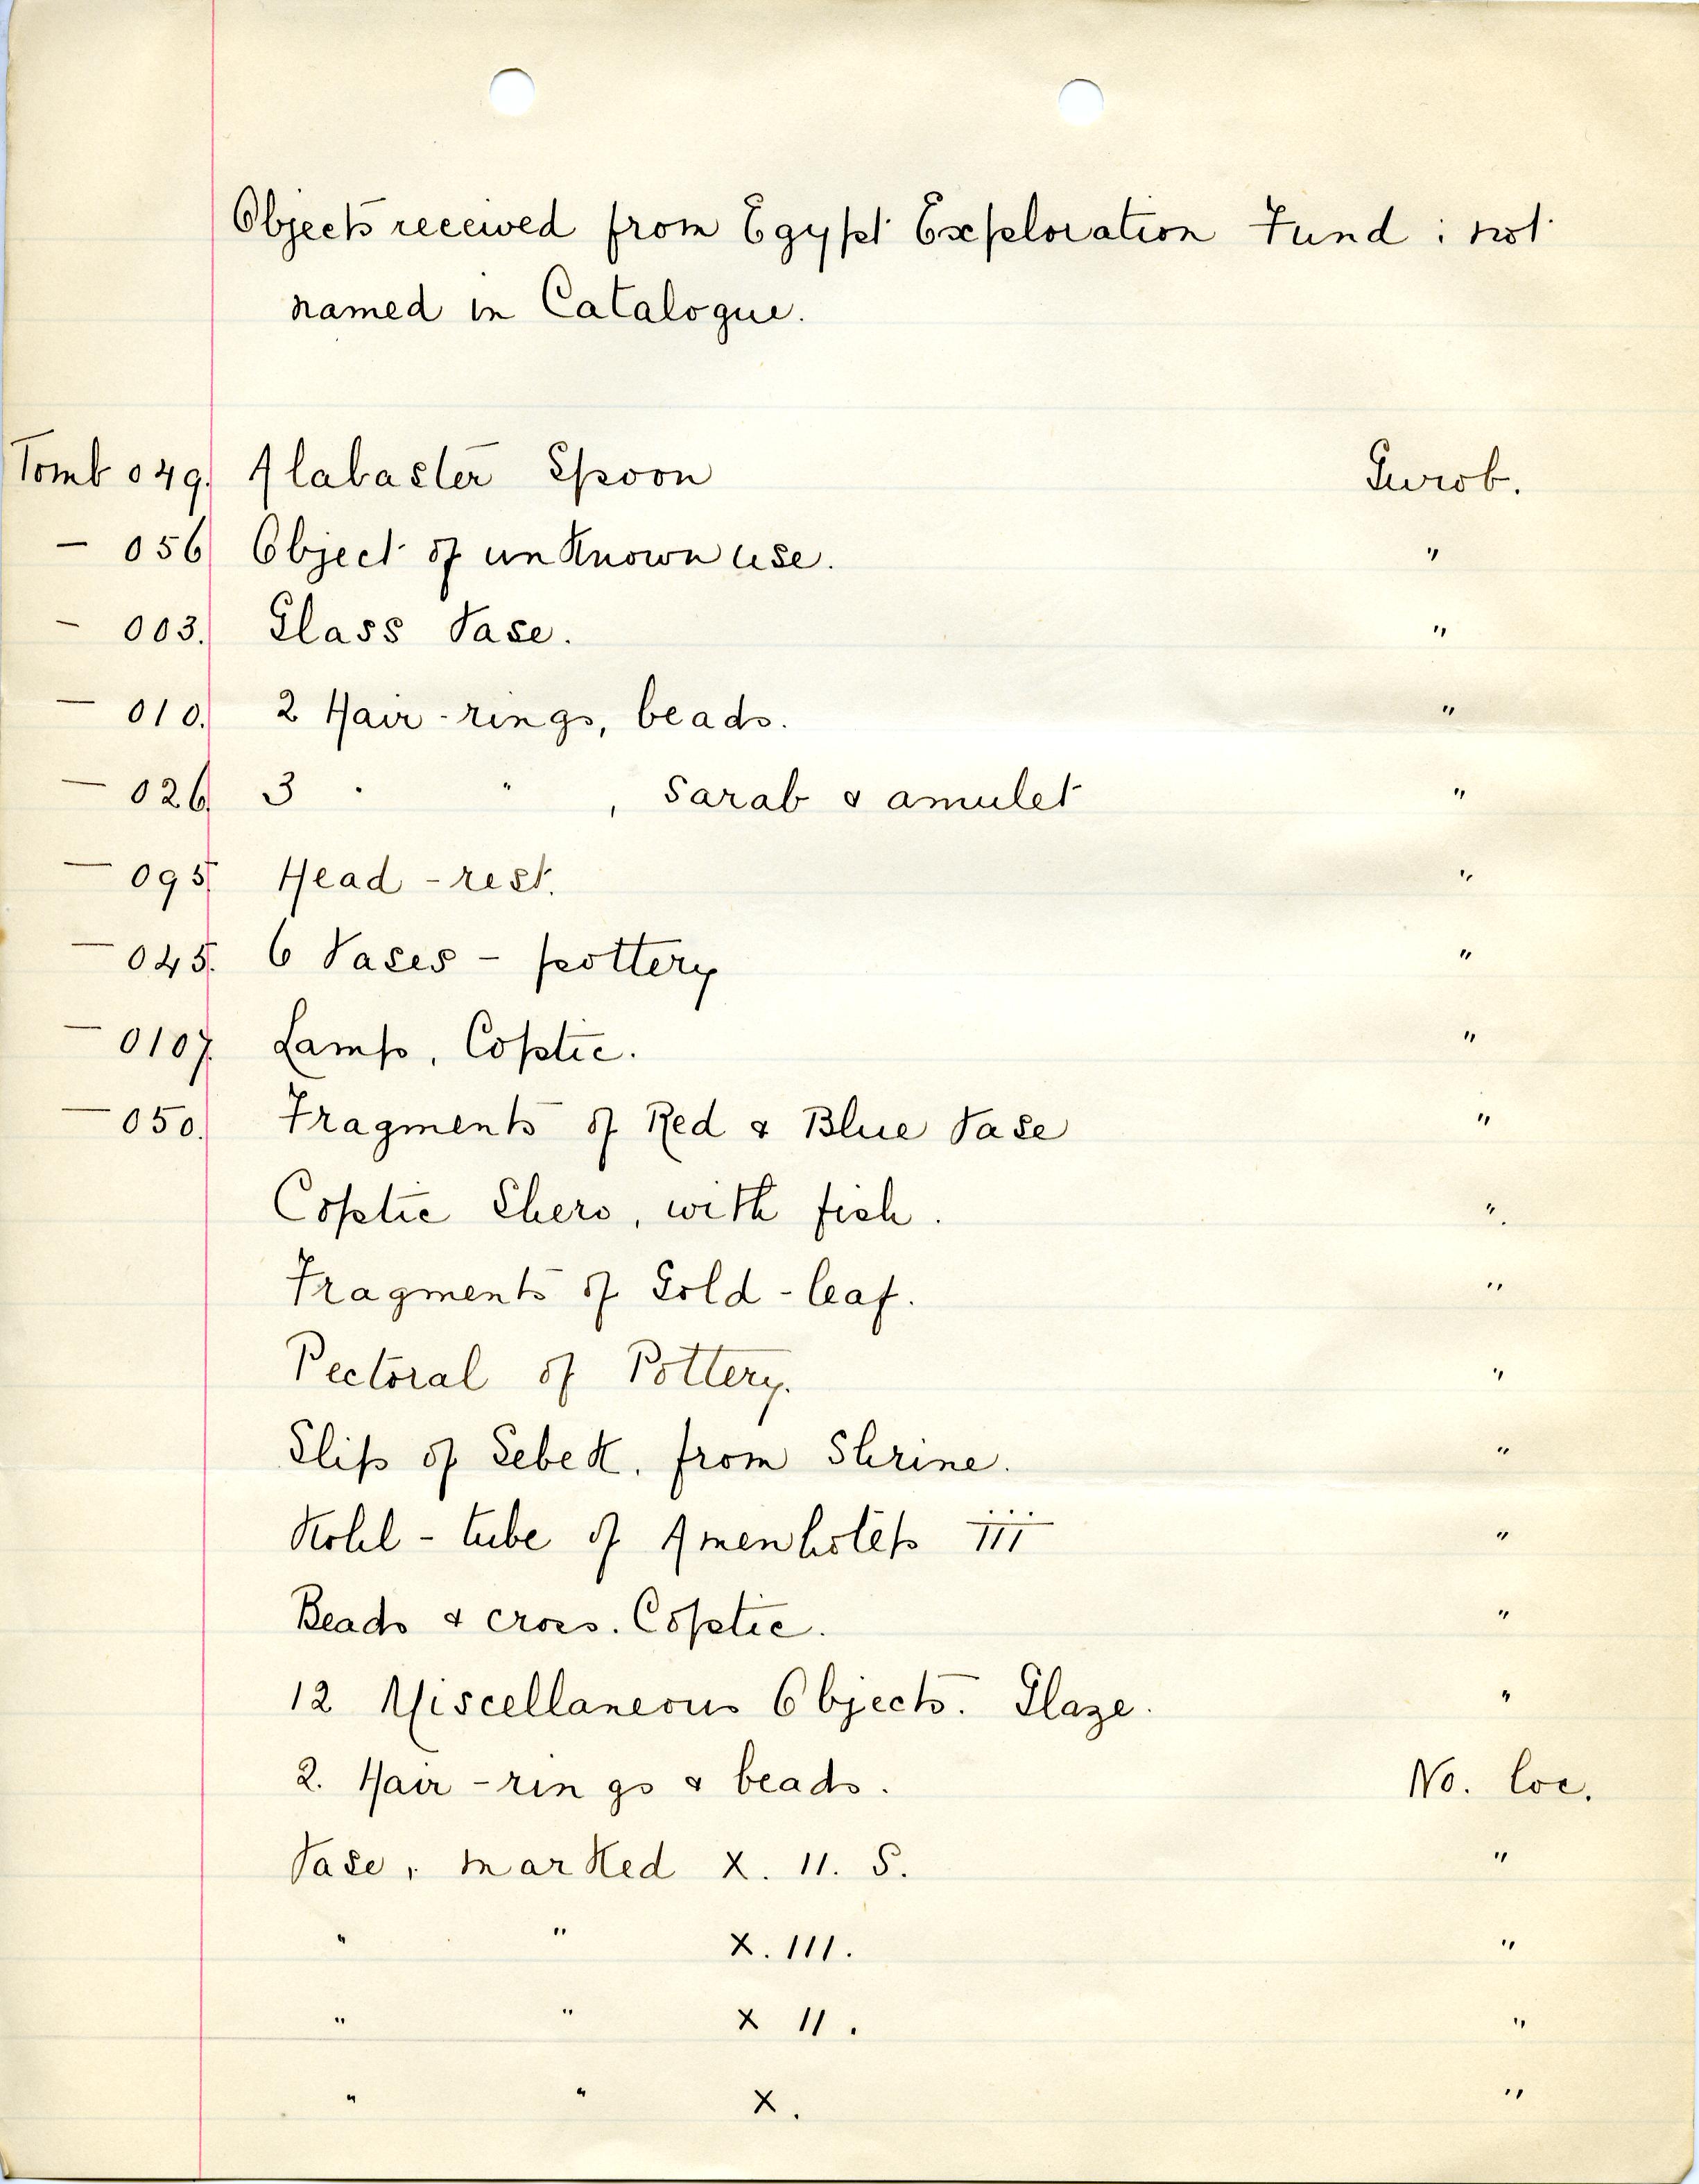 Objects received from Egypt Exploration Fund : not
named in Catalogue.
Tomb 049. Alabaster Spoon Gurob.
— 056 Object of unknown use. "
— 003. Glass Vase. "
— 010. 2 Hair-rings, beads. "
— 026. 3 " " , Sarab & amulet "
— 095 Head-rest. "
— 045. 6 Vases - pottery "
— 0107. Lamp, Coptic. "
— 050. Fragments of Red & Blue Vase "
Coptic , with fish. "
Fragments of Gold-leaf. "
Pectoral of Pottery. "
Slip of Sebek. from Shrine. "
Kohl-tube of Amenhotep III "
Beads & cross. Coptic. "
12 Miscellaneous Objects. Glaze. "
2. Hair-rings & beads. No. loc.
Vase, marked X. 11. S. "
" " X. III. "
" " X 11. "
" " X. "